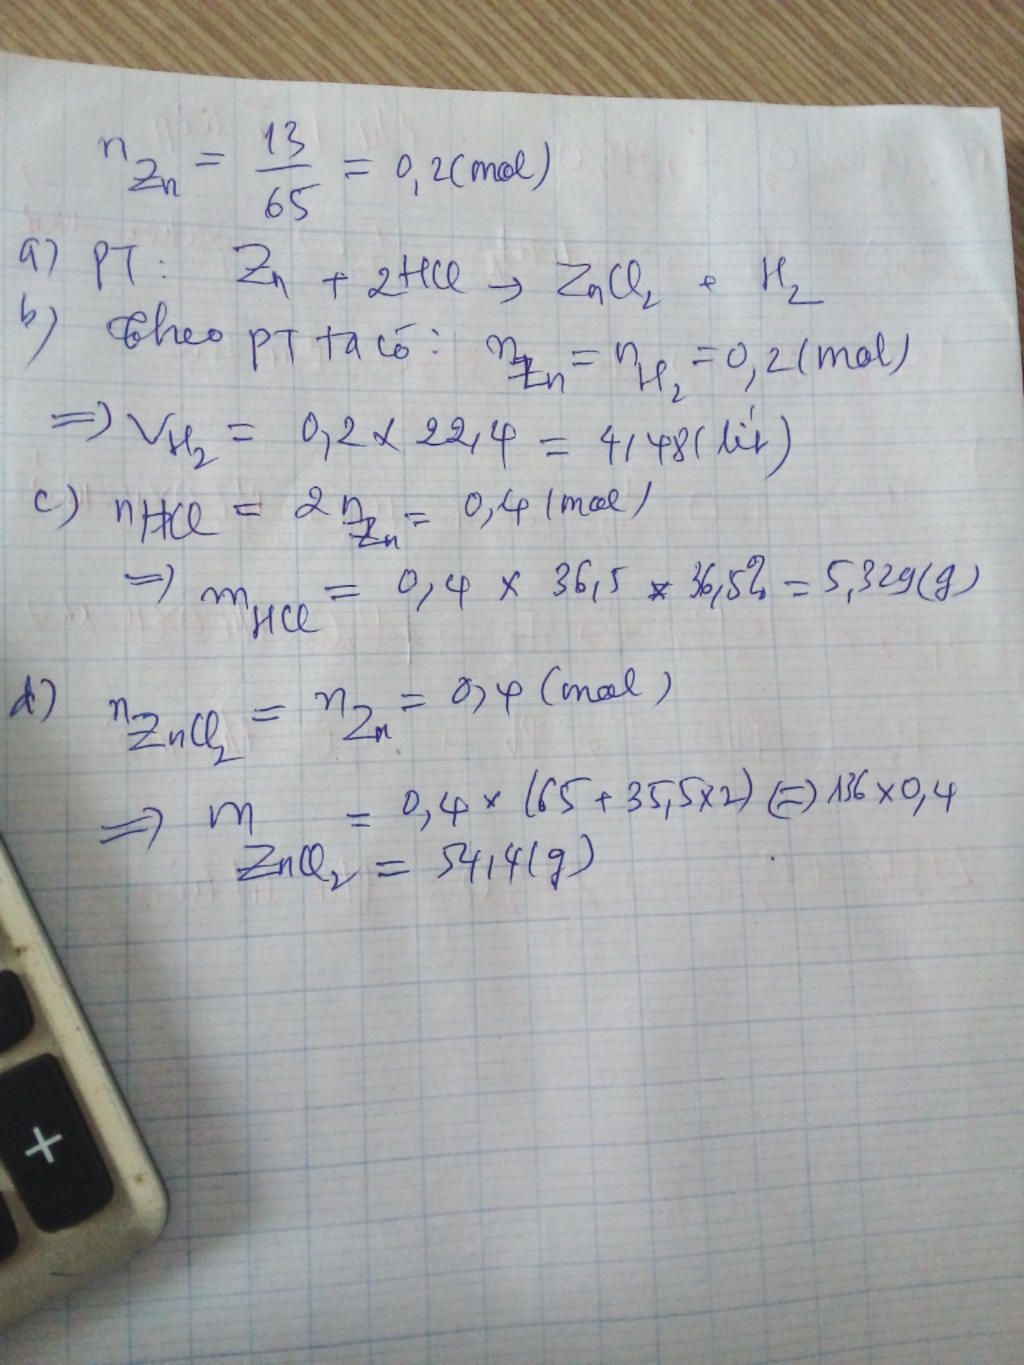 n Zn = 13/65 = 0,2 (mol)
a) PT: Zn + 2HCl → ZnCl2 + H2
b) Theo PT ta có: nZn = nH2 = 0,2 (mol)
=> VH2 = 0,2 x 22,4 = 4,48 (lít)
c) nHCl = 2 nZn = 0,4 (mol)
=> mHCl = 0,4 x 36,5 x 36,5% = 5,329 (g)
d) nZnCl2 = nZn = 0,4 (mol)
=> m ZnCl2 = 0,4 x (65 + 35,5 x 2) (=) 136 x 0,4
= 54,4 (g)
+